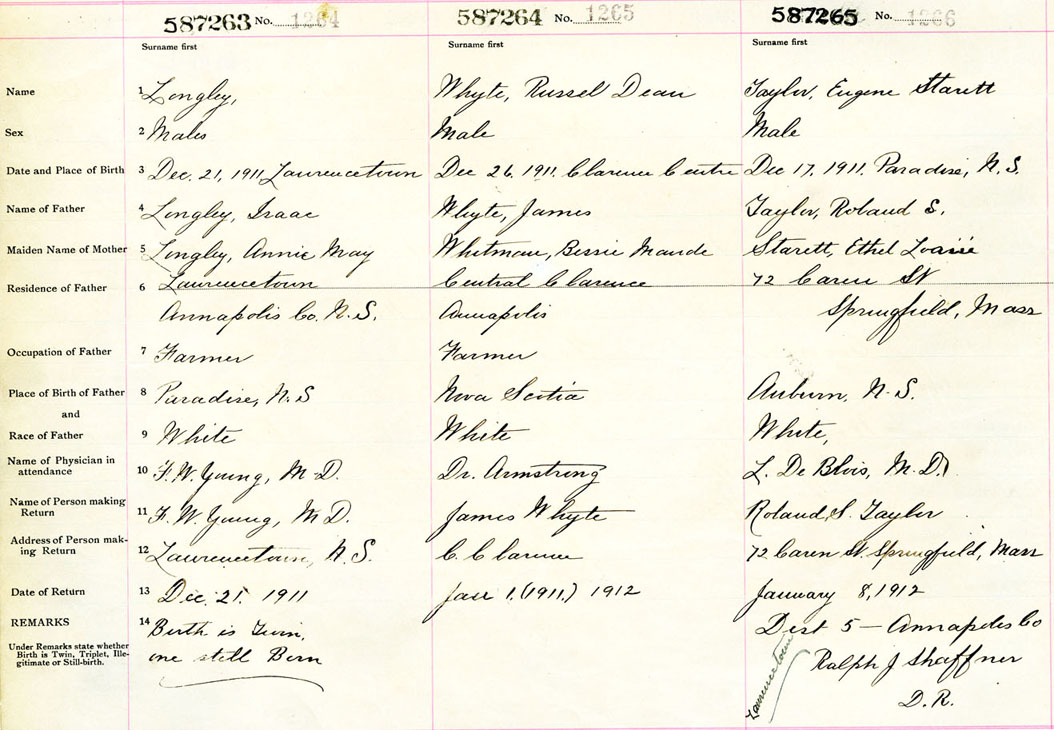 587263 No. 1264 587264 No. 1265 587265 No. 1266
Surname first Surname first Surname first
Name 1 Longley, Whyte, Russel Dean Taylor, Eugene Starett
Sex 2 Males Male Male
Date and Place of Birth 3 Dec. 21, 1911 Laurencetown Dec 26, 1911, Clarence Centre Dec 17, 1911, Paradise, N.S.
Name of Father 4 Longley, Isaac Whyte, James Taylor, Roland S.
Maiden Name of Mother 5 Longley, Annie May Whitman, Bessie Maude Starett, Ethel
Residence of Father 6 Laurencetown Central Clarence 72 Caren St
Annapolis Co. N.S. Annapolis Springfield, Mass
Occupation of Father 7 Farmer Farmer
Place of Birth of Father 8 Paradise, N.S Nova Scotia Auburn, N.S.
and
Race of Father 9 White White White,
Name of Physician in
attendance 10 F. W. Young, M.D. Dr. Armstrong L. De Blois, M.D.
Name of Person making
Return 11 F. W. Young, M D. James Whyte Roland S. Taylor
Address of Person mak-
ing Return 12 Laurencetown, N.S. C. Clarence 72 Caren St. Springfield, Mass
Date of Return 13 Dec. 21. 1911 Jan 1. (1911.) 1912 January 8, 1912
REMARKS 14 Birth is Twin, Dist 5 — Annapolis Co
Under Remarks state whether
Birth is Twin, Triplet, Ille-
gitimate or Still-birth. one still Born Laurencetown Ralph J Shaffner
D.R.